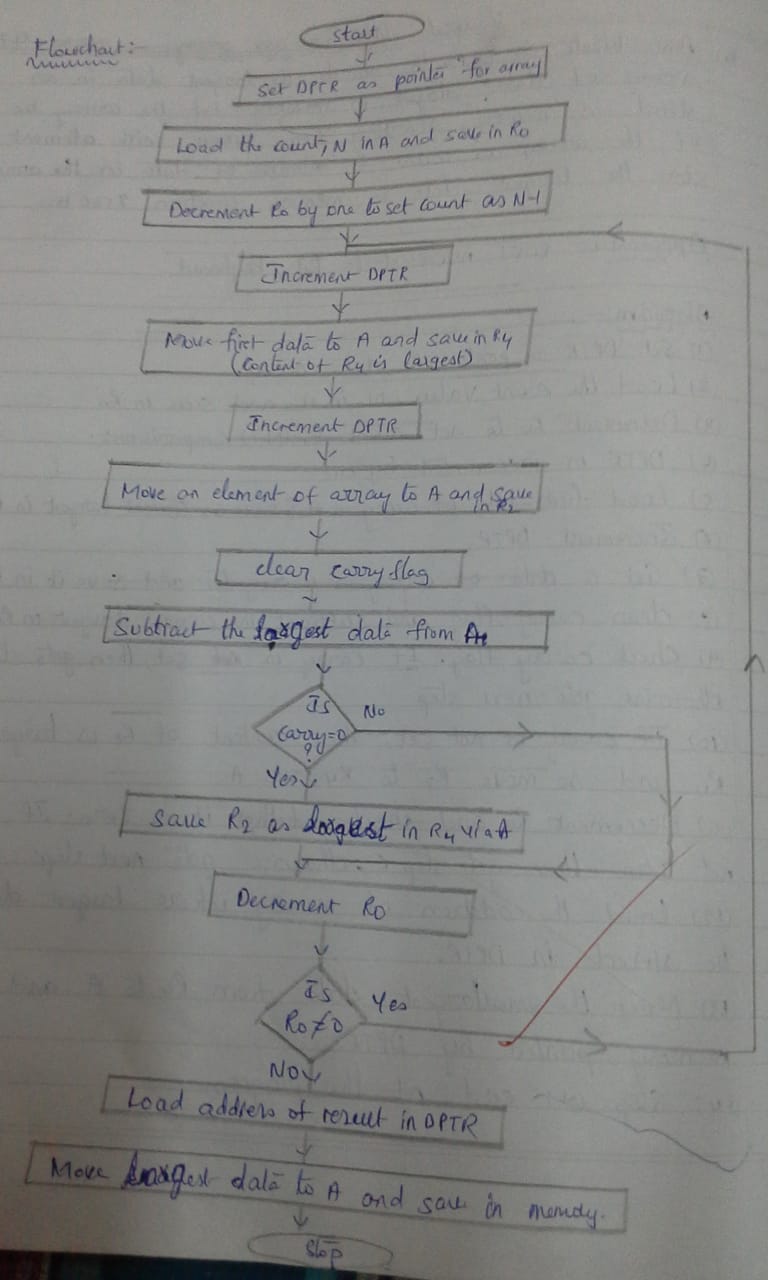 Flowchart:-
start
Set DPTR as pointer for array
Load the count, N in A and save in R0
Decrement R0 by one to set count as N-1
Increment DPTR
Move first data to A and save in R4
(Content of R4 is largest)
Increment DPTR
Move an element of array to A and save
in R2
clear carry flag
Subtract the largest data from A.
Is
Carry=0
?
No
Yes
Save R2 as largest in R4 via A
Decrement R0
Is
R0≠0
Yes
No
Load address of result in DPTR
Move largest data to A and save in memory.
Stop